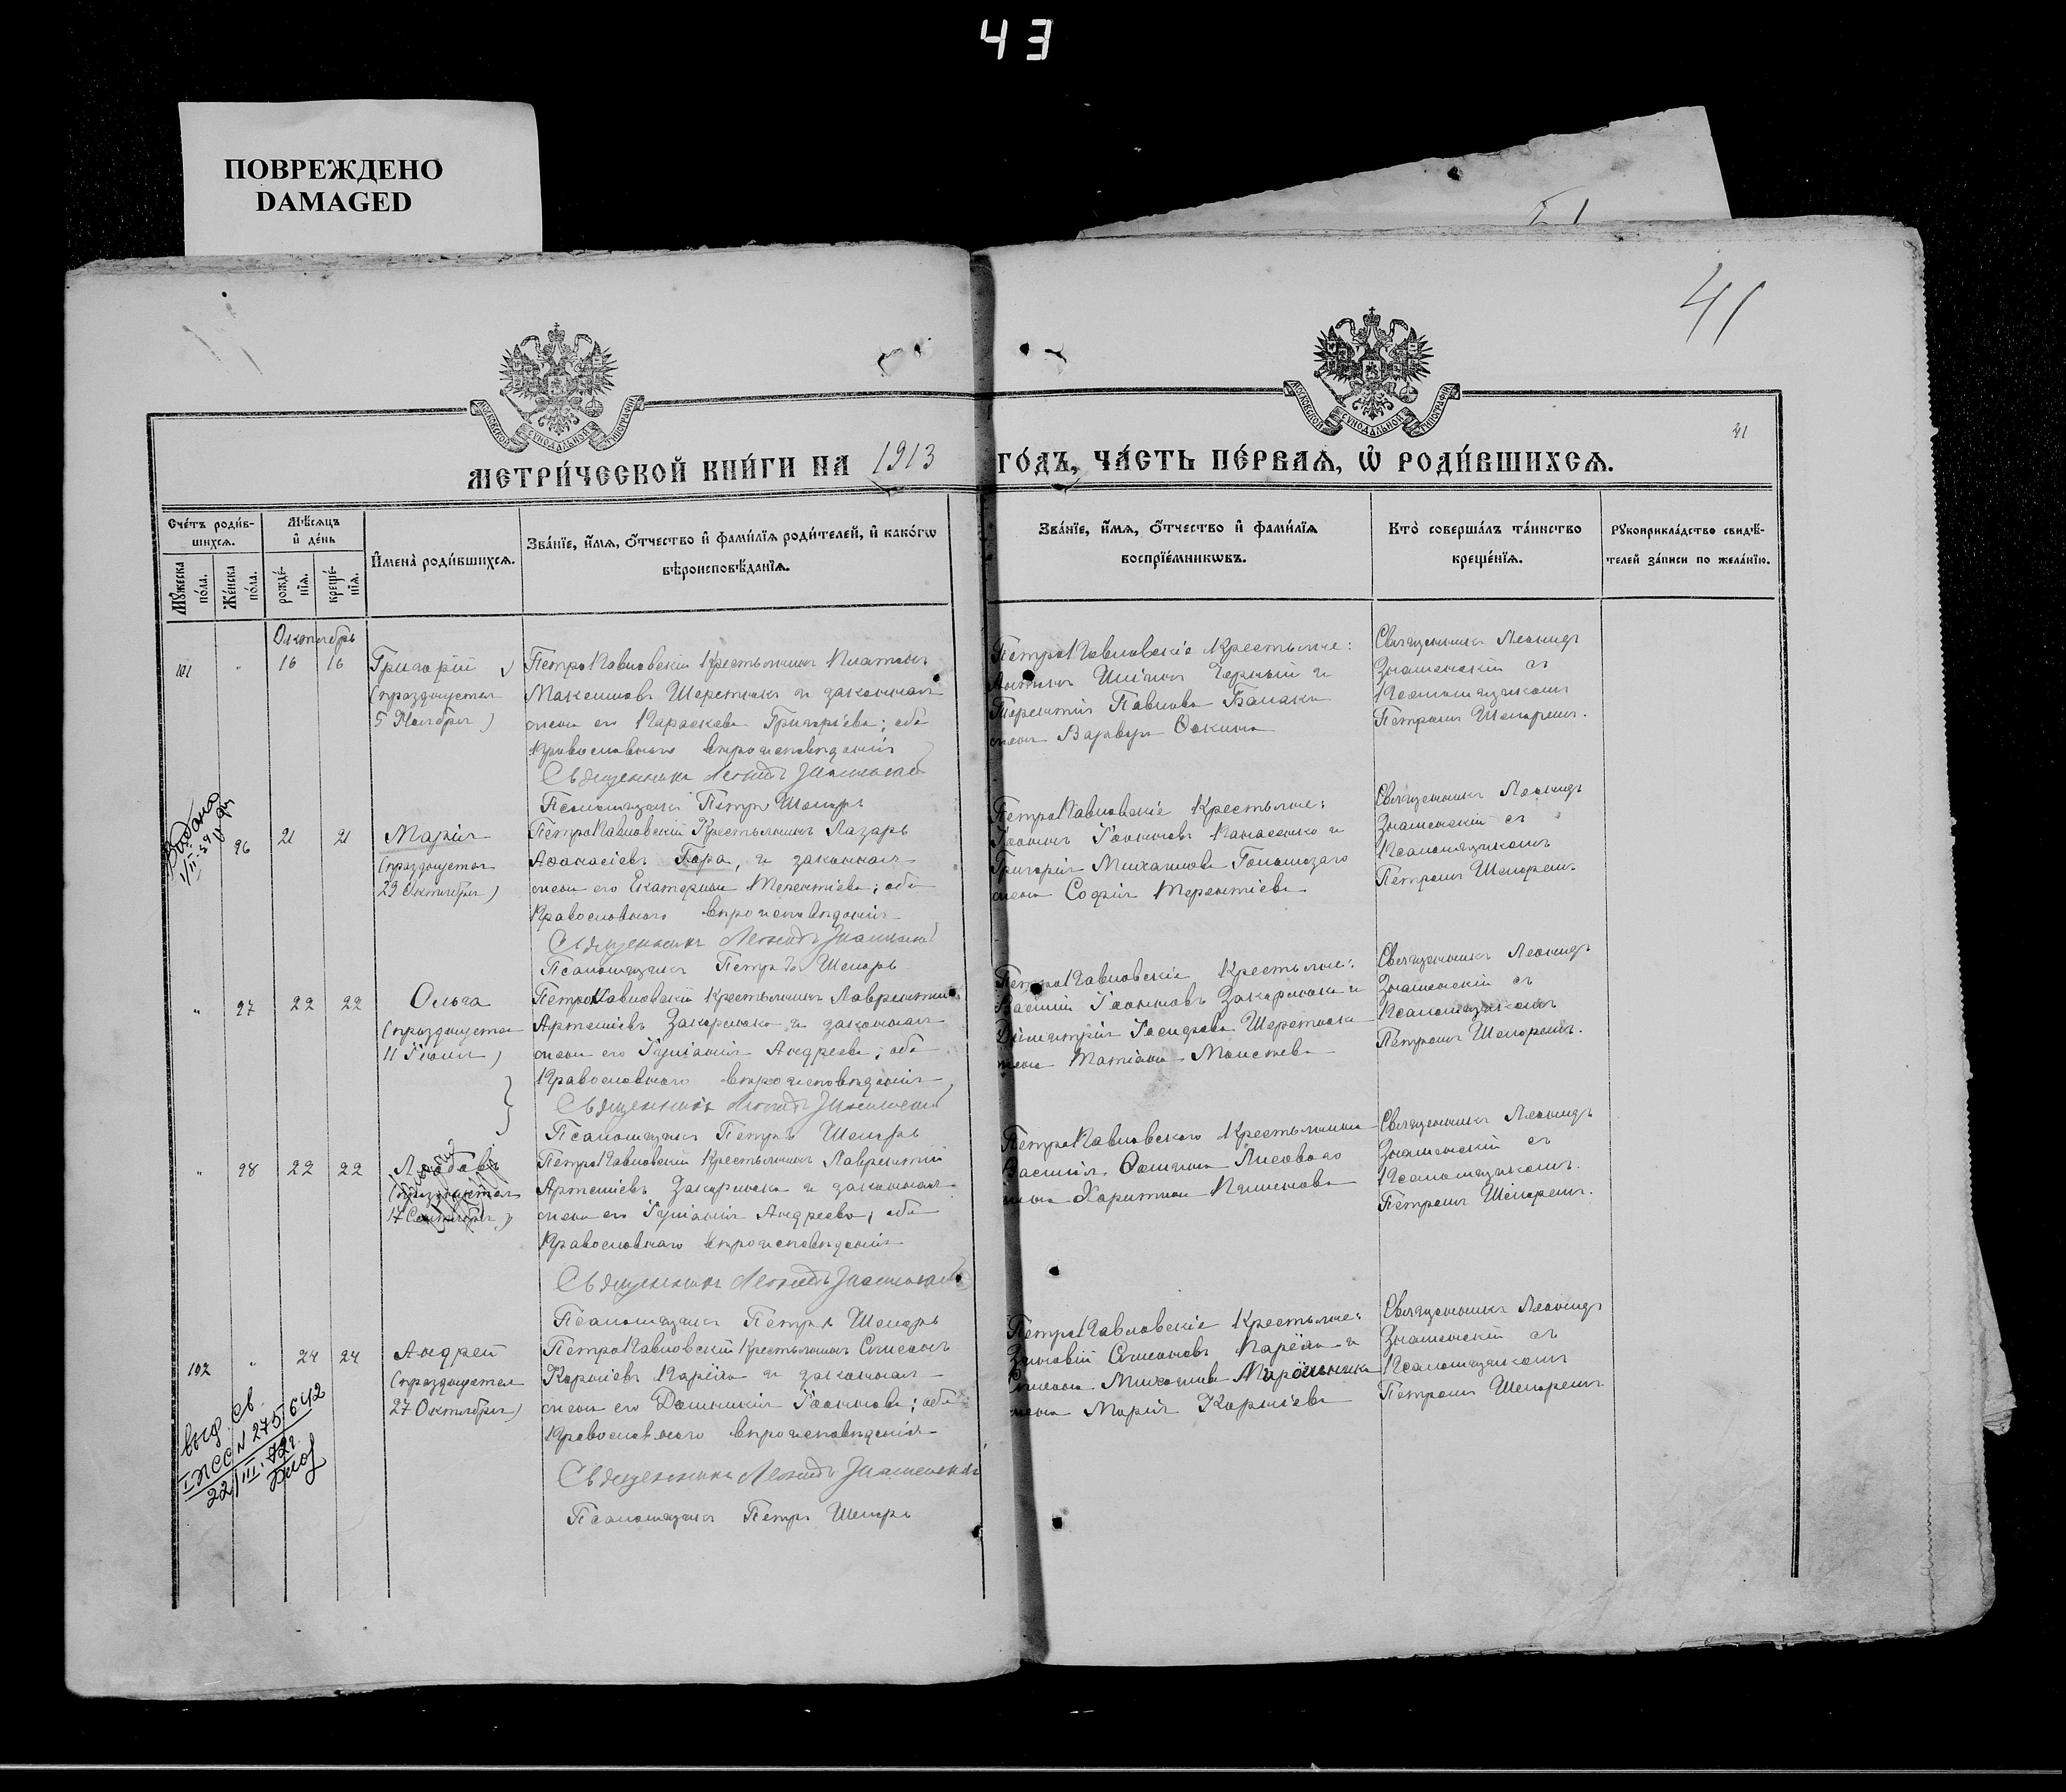 43
ПОВРЕЖДЕНО
DAMAGED
41
21
МОСКОВСКОЙ СѴНОДАЛЬНОЙ ТИПОГРАФІИ
МОСКОВСКОЙ СѴНОДАЛЬНОЙ ТИПОГРАФІИ
МЕТРИ́ЧЕСКОЙ КНИ́ГИ НА 1913 ГО́ДЪ, ЧА́СТЬ ПЕ́РВАѦ, Ѡ҆ РОДИ́ВШИХСѦ.
Сче́тъ роди́вшихсѧ.
Мꙋжеска по́ла.
Же́нска по́ла.
Мѣ́сѧцъ и҆ де́нь
рожде́нїѧ.
креще́нїѧ.
И҆мена̀ роди́вшихсѧ.
Зва́нїе, и҆́мѧ, ѻ҆́тчество и҆ фами́лїѧ роди́телей, и҆ како́гѡ вѣроисповѣ́данїѧ.
Зва́нїе, и҆́мѧ, ѻ҆́тчество и҆ фами́лїѧ воспрїе́мникѡвъ.
Кто̀ соверша́лъ та́инство креще́нїѧ.
Рꙋкоприкла́дство свидѣ́телей за́писи по жела́нїю.
Октябрь
101 " 16 16
Григорій
(празднуется
5 Ноября)
ПетроПавловскій Крестьянинъ Платонъ
Максимовъ Шеретюкъ и законная
жена его Параскева Григорьева; оба
Православнаго вѣроисповѣданія
Священникъ Леонидъ Знаменскій
Псаломщикъ Петръ Шепарь
ПетроПавловскіе Крестьяне:
Черный и
Терентія Павлова
жена Варвара Ѳокина
Священникъ Леонидъ
Знаменскій съ
Псаломщикомъ
Петромъ Шепаремъ.
Выдано
96 21 21
Марія
(празднуется
29 Октября)
ПетроПавловскій Крестьянинъ Лазарь
Аѳанасіевъ Гора, и законная
жена его Екатерина Терентіева; оба
Православнаго вѣроисповѣданія
Священникъ Леонидъ Знаменскій
Псаломщикъ Петръ Шепарь
ПетроПавловскіе Крестьяне:
Іоаннъ Іоанновъ Панасенко и
Григорія Михаилова
жена Софія Терентіева
Священникъ Леонидъ
Знаменскій съ
Псаломщикомъ
Петромъ Шепаремъ.
" 97 22 22
Ольга
(празднуется
11 Іюля)
ПетроПавловскій Крестьянинъ Лаврентій
Артеміевъ Закарлюка и законная
жена его Іуліанія Андреева; оба
Православнаго вѣроисповѣданія
Священникъ Леонидъ Знаменскій
Псаломщикъ Петръ Шепарь
ПетроПавловскіе Крестьяне:
Василій Іоанновъ Закарлюка и
Димитрія Іосифова Шеретюка
жена Татіана Моисеева
Священникъ Леонидъ
Знаменскій съ
Псаломщикомъ
Петромъ Шепаремъ.
" 98 22 22
Любовь
(празднуется
17 Сентября)
ПетроПавловскій Крестьянинъ Лаврентій
Артеміевъ Закарлюка и законная
жена его Іуліанія Андреева; оба
Православнаго вѣроисповѣданія
Священникъ Леонидъ Знаменскій
Псаломщикъ Петръ Шепарь
ПетроПавловскаго Крестьянина
Василія Ѳомина Лисоваго
жена Харитина Пименова
Священникъ Леонидъ
Знаменскій съ
Псаломщикомъ
Петромъ Шепаремъ.
102 " 24 24
Андрей
(празднуется
27 Октября)
ПетроПавловскій Крестьянинъ Симеонъ
Корніевъ и законная
жена его Домникія Іоаннова; оба
Православнаго вѣроисповѣданія
Священникъ Леонидъ Знаменскій
Псаломщикъ Петръ Шепарь
ПетроПавловскіе Крестьяне:
Зиновій Симеоновъ и
Симеона Михаилова Мирошника
жена Марія Корніева
Священникъ Леонидъ
Знаменскій съ
Псаломщикомъ
Петромъ Шепаремъ
выд. св.
N 275642
22/III.